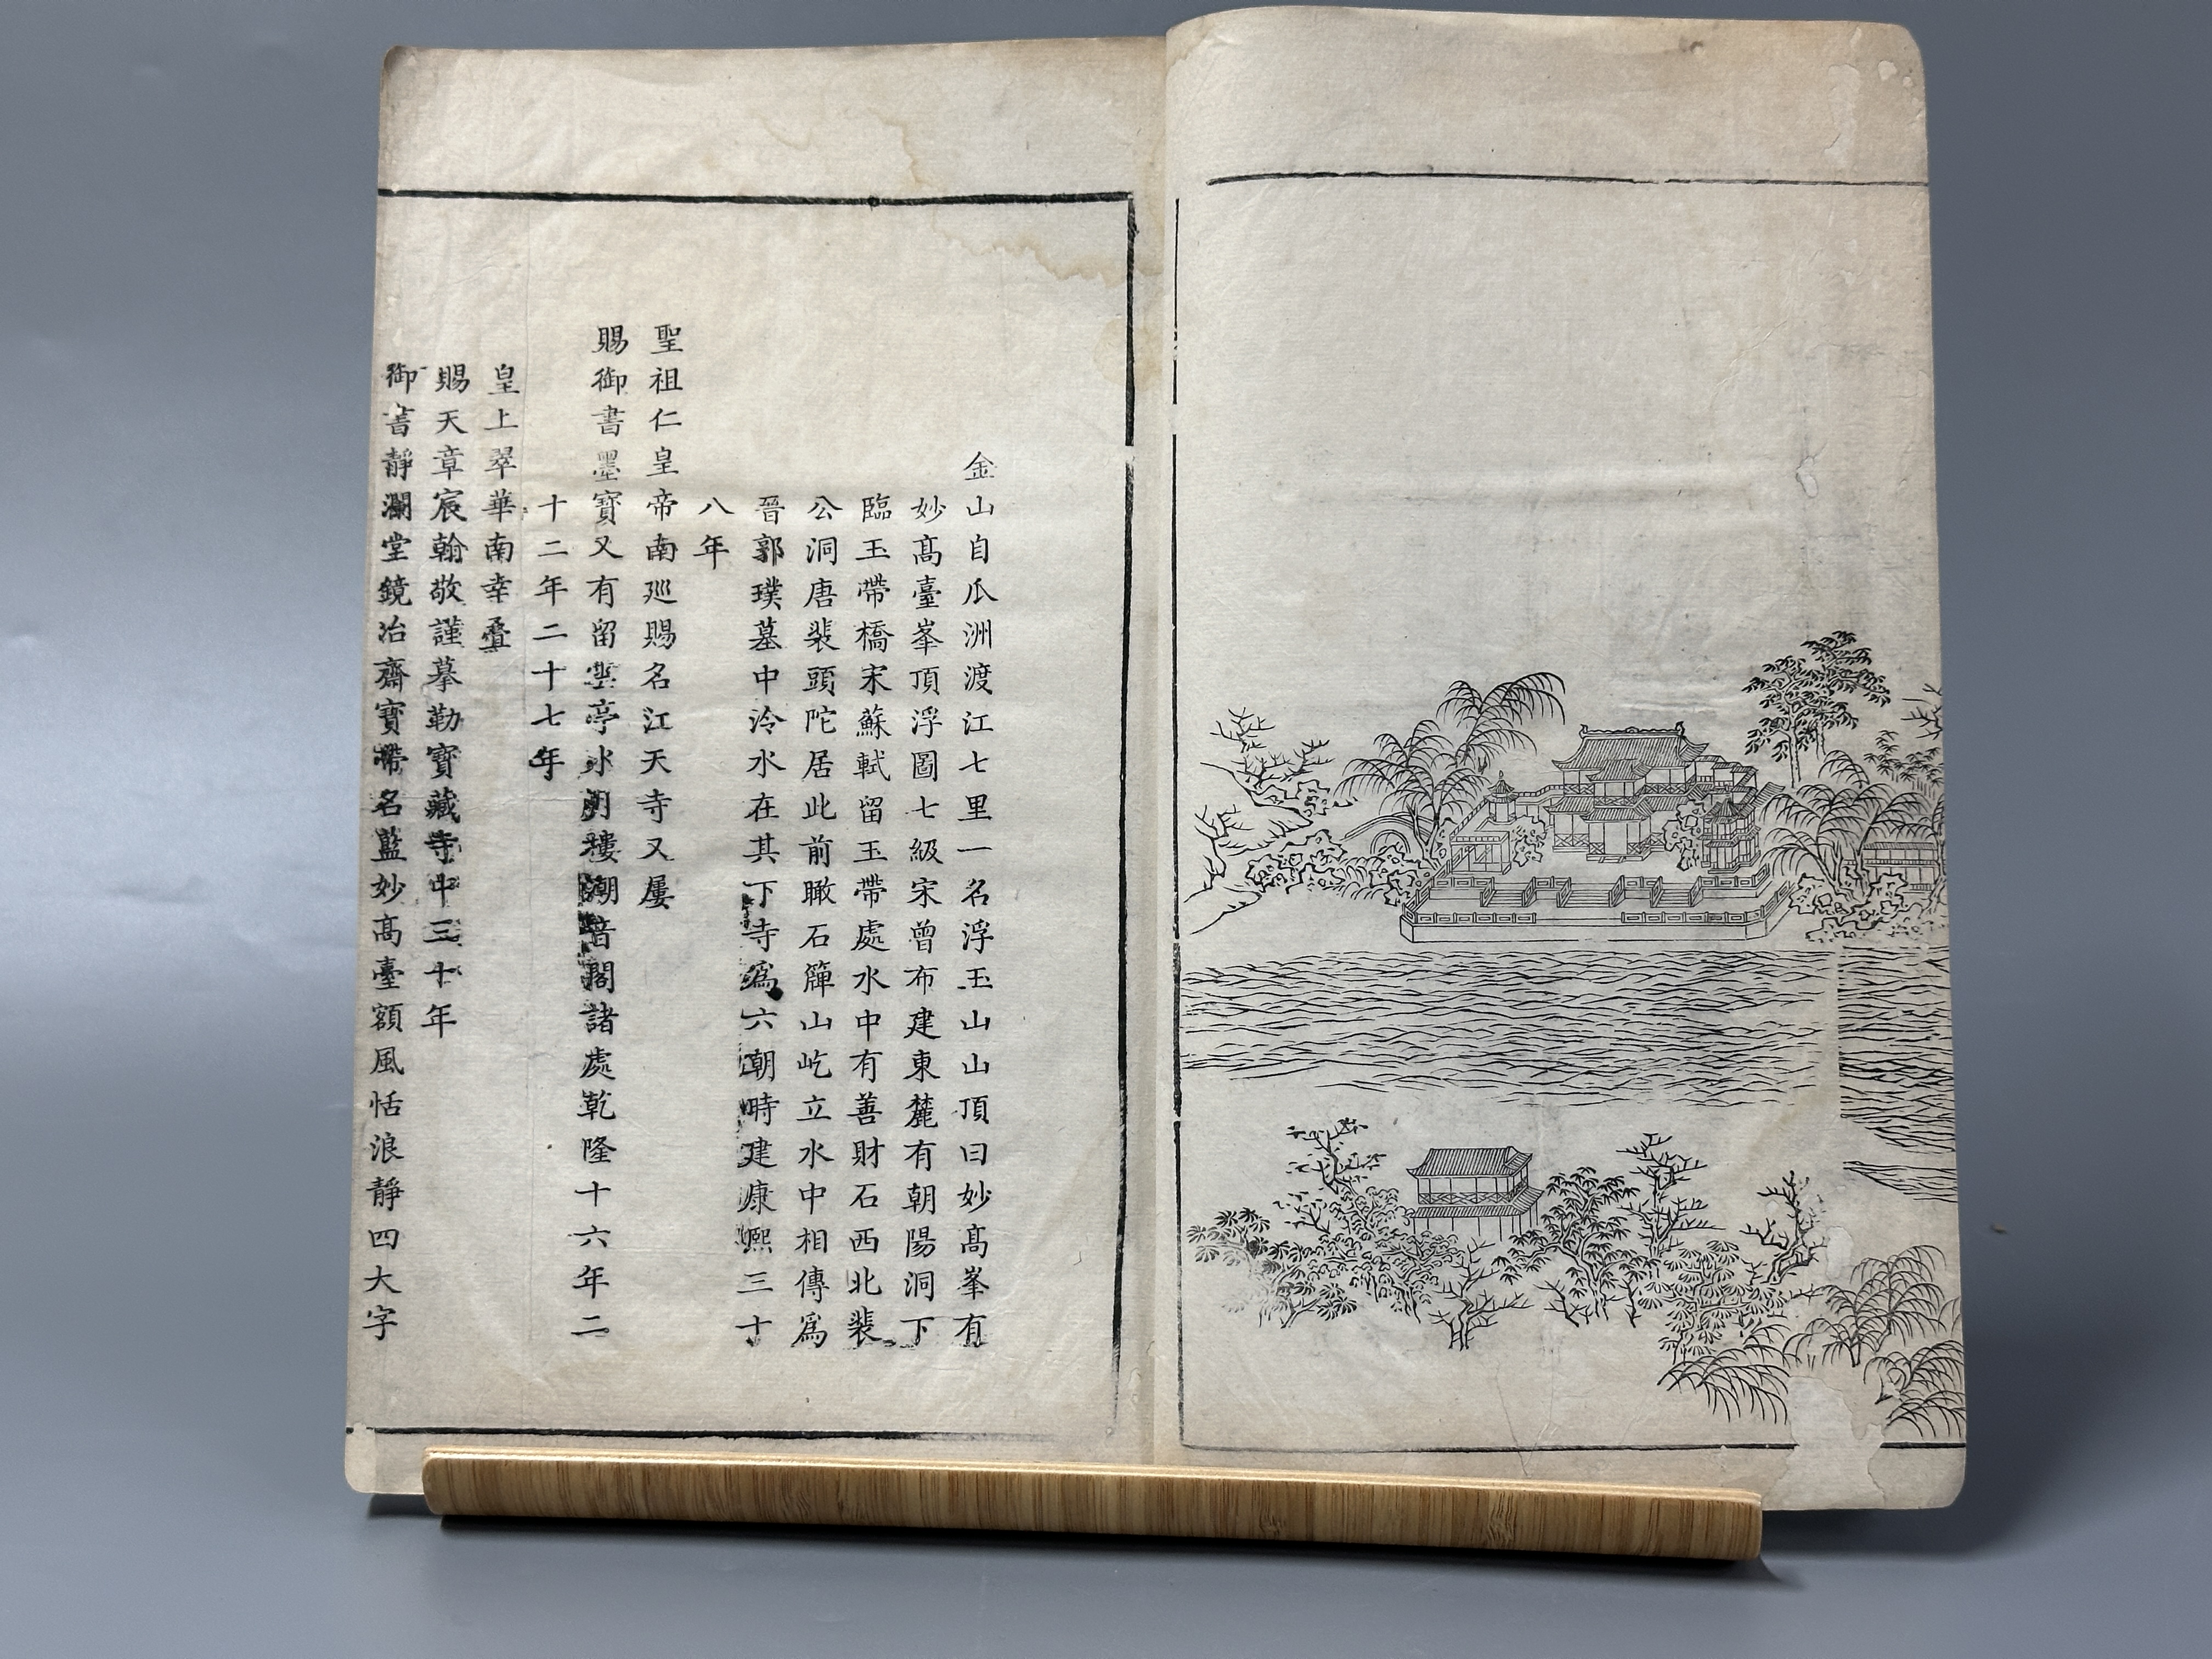 金山自瓜洲渡江七里一名浮玉山山頂曰妙髙峯有
妙髙臺峯頂浮圖七級宋曾布建東麓有朝陽洞下
臨玉帶橋宋蘇軾留玉帶處水中有善財石西北裴
公洞唐裴頭陀居此前瞰石簰山屹立水中相傳爲
晉郭璞墓中泠水在其下寺爲六朝時建康熈三十
八年
聖祖仁皇帝南廵賜名江天寺又屢
賜御書墨寶又有留雲亭水月樓潮音閣諸處乾隆十六年二
十二年二十七年
皇上翠華南幸疊
賜天章宸翰敬謹摹勒寶藏寺中三十年
御書靜瀾堂鏡治齋寶帶名藍妙髙臺額風恬浪靜四大字